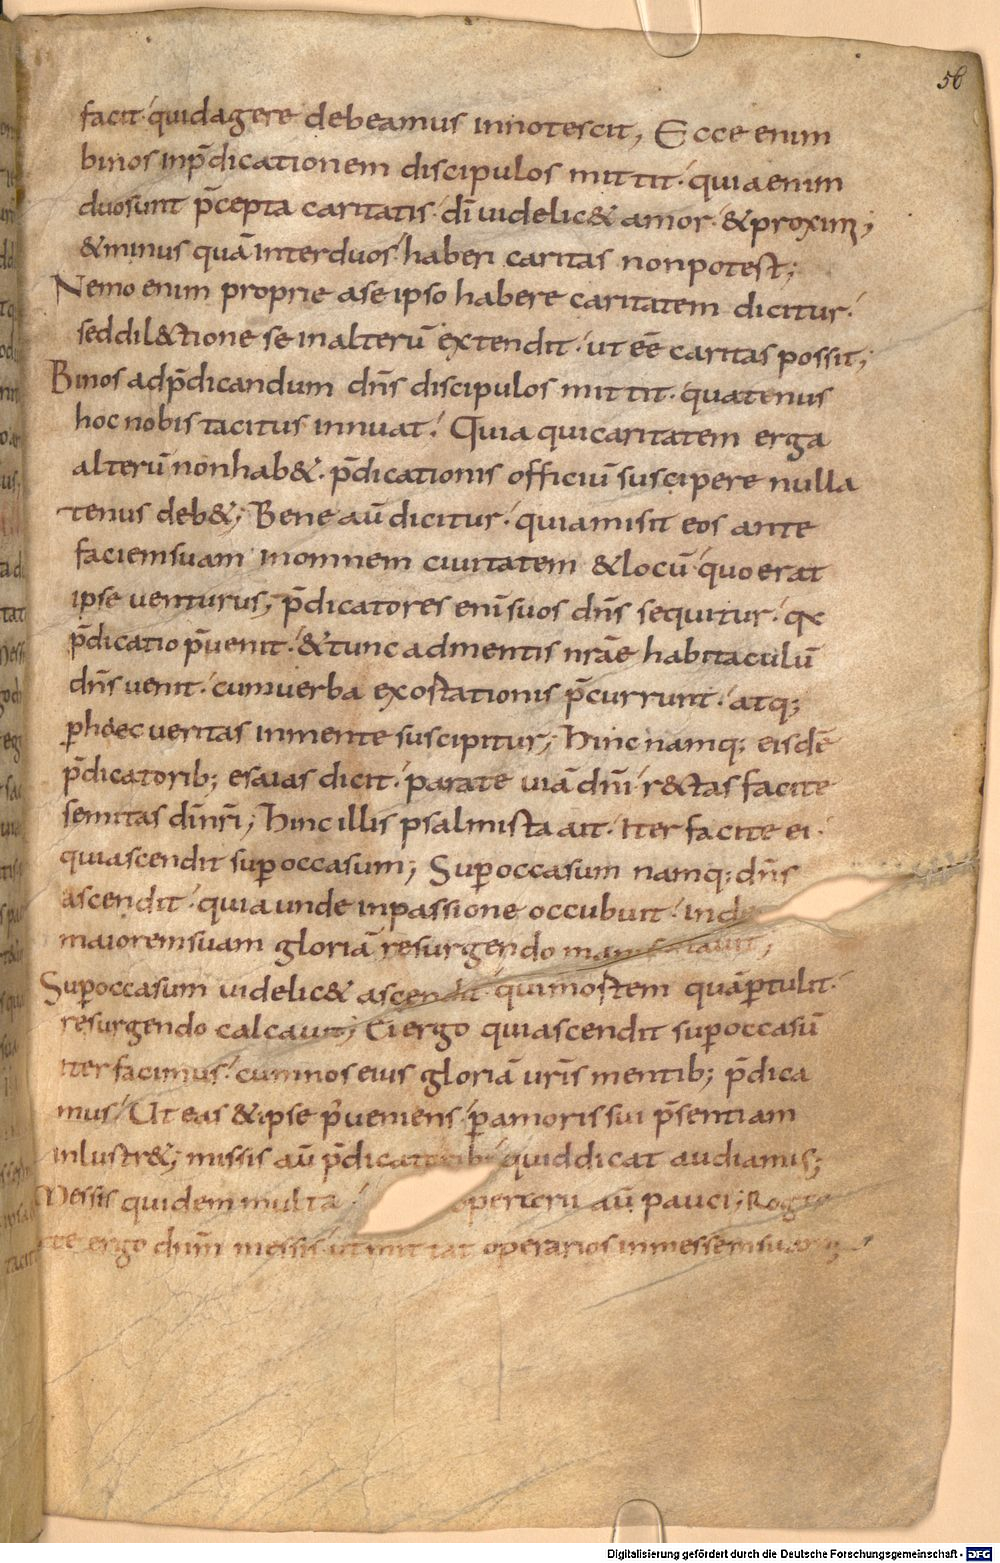 56
facit· quid agere debeamus innotescit, Ecce enim
binos inp̄dicationem discipulos mittit· quia enim
duo sunt p̄cepta caritatis· dī videlic& amor· & proximi;
& minus quā inter duos haberi caritas non potest;
Nemo enim proprie ase ipso habere caritatem dicitur·
sed dil&tione se in alterū extendit· ut eē caritas possit;
Binos ad p̄dicandum dn̄s discipulos mittit· quatenus
hoc nobis tacitus innuat· Quia qui caritatem erga
alterū non hab&· p̄dicationis officiū suscipere nulla
tenus deb&; Bene aū dicitur· quia misit eos ante
faciem suam in omnem civitatem & locū quo erat
ipse venturus; p̄dicatores enī suos dn̄s sequitur· qia
p̄dicatio p̄venit· & tunc ad mentis nr̄ae habitaculū
dn̄s venit· cum verba exostationis p̄currunt· atq;
p hoec veritas in mente suscipitur; Hinc namq; eisdē
p̄dicatorib; esaias dicit· parate viā dn̄i r&tas facite
semitas dī nr̄i; Hinc illis psalmista ait· Iter facite ei·
qui ascendit sup occasum; Sup occasum namq; dn̄s
ascendit· quia unde in passione occubuit· inde
maiorem suam gloriā resurgendo manifestavit;
Sup occasum videlic& ascendit· qui mostem quā ptulit·
resurgendo calcavit; Ei ergo qui ascendit sup occasū
iter facimus· cum nos eius gloriā vr̄is mentib; p̄dica
mus· Ut eas & ipse p̄veniens· p amoris sui p̄sentiam
inlustr&; missis aū p̄dicatorib; quid dicat audiamus;
Messis quidem multa operarii aū pauci; Rogate
ergo dnm̄ messis ut mittat operarios in messem suam
Digitalisierung gefördert durch die Deutsche Forschungsgemeinschaft - DFG